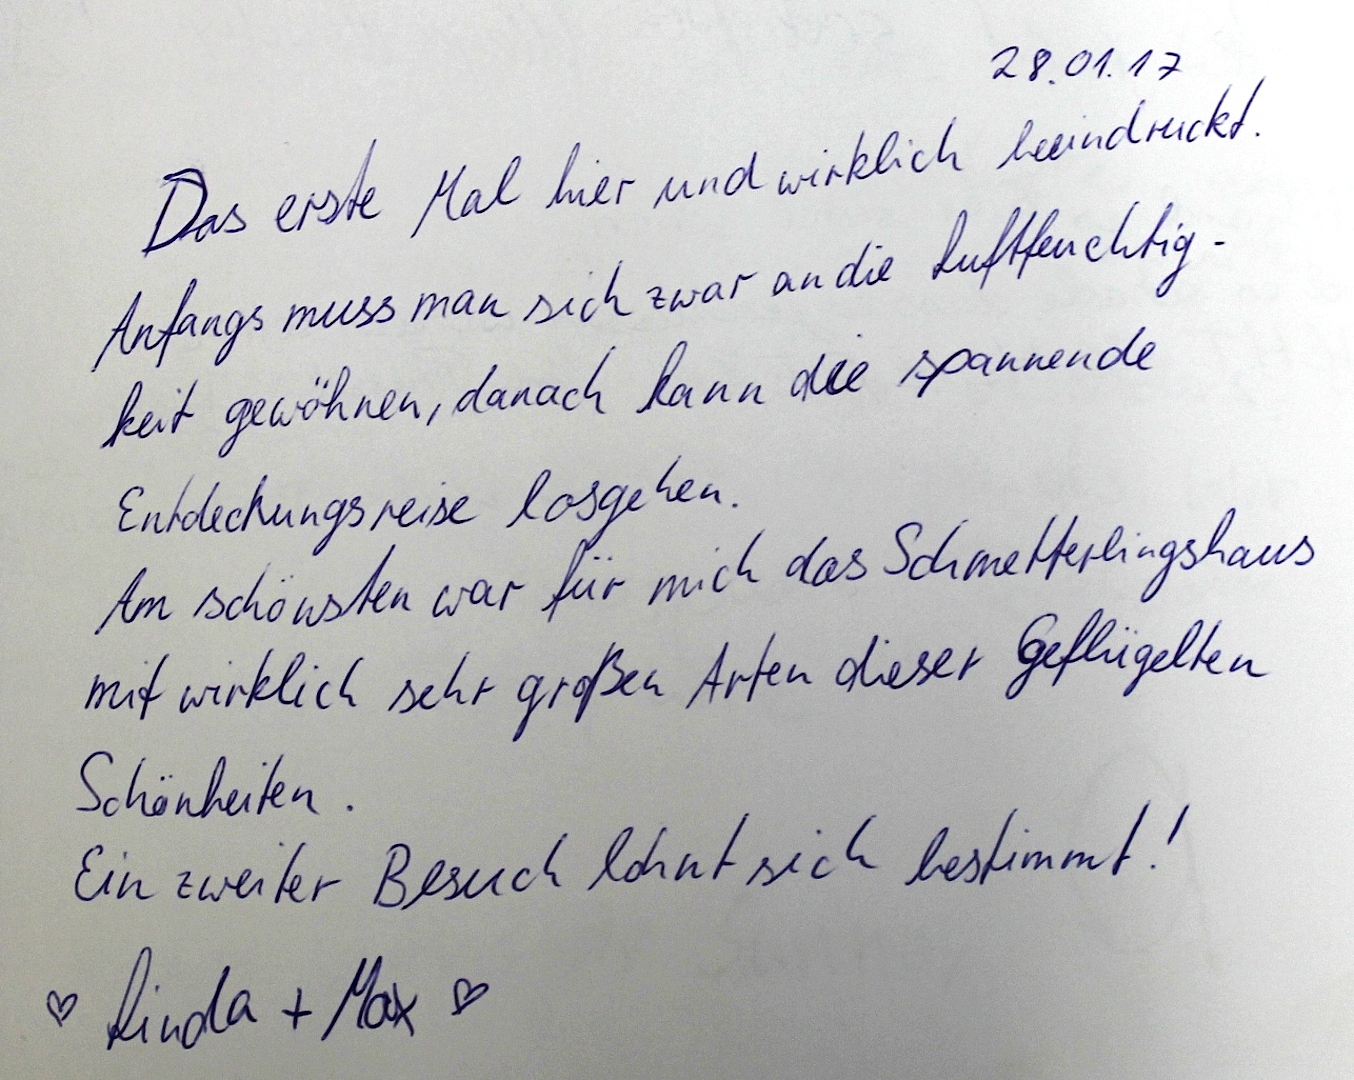 28.01.17
Das erste Mal hier und wirklich beeindruckt.
Anfangs muss man sich zwar an die Luftfeuchtig-
keit gewöhnen, danach kann die spannende
Entdeckungsreise losgehen.
Am schönsten war für mich das Schmetterlingshaus
mit wirklich sehr großen Arten dieser Geflügelten
Schönheiten.
Ein zweiter Besuch lohnt sich bestimmt!
♡ Linda + Max ♡